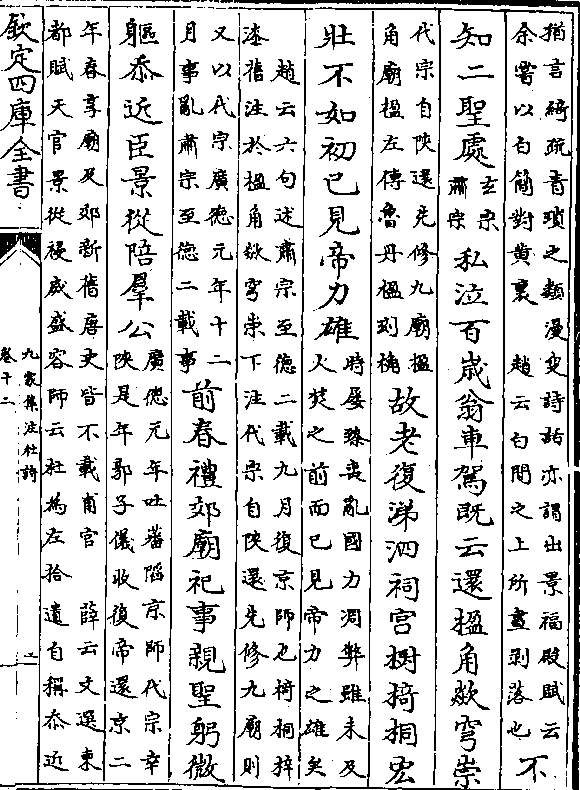 猶言綺疏青瑣之類漫叟詩話亦謂出景福殿賦云
余嘗以白簡對黃裏　趙云白間之上所畫剥落也
不
知二聖處
玄宗
肅宗
私泣百歲翁車駕既云還楹角欻穹崇
代宗自陝還先修九廟楹
角廟楹左傳魯丹楹刻桷
故老復涕泗祠宮樹椅桐宏
壯不如初已見帝力雄
時屢臻喪亂國力凋弊雖未及
火焚之前而已見帝力之雄矣
趙云六句述肅宗至德二載九月復京師也椅桐梓
漆舊注於楹角欻穹崇下注代宗自陝還先修九廟則
又以代宗廣德元年十二
月事亂肅宗至德二載事
前春禮郊廟祀事親聖躬微
軀忝近臣景從陪羣公
廣德元年吐蕃陷京師代宗幸
陝是年郭子儀收復帝還京二
年春享廟及郊新舊唐史皆不載甫官　薛云文選東
都賦天官景從祲威盛容師云杜為左拾遺自稱忝近
欽定四庫全書
九家集注杜詩
卷十二